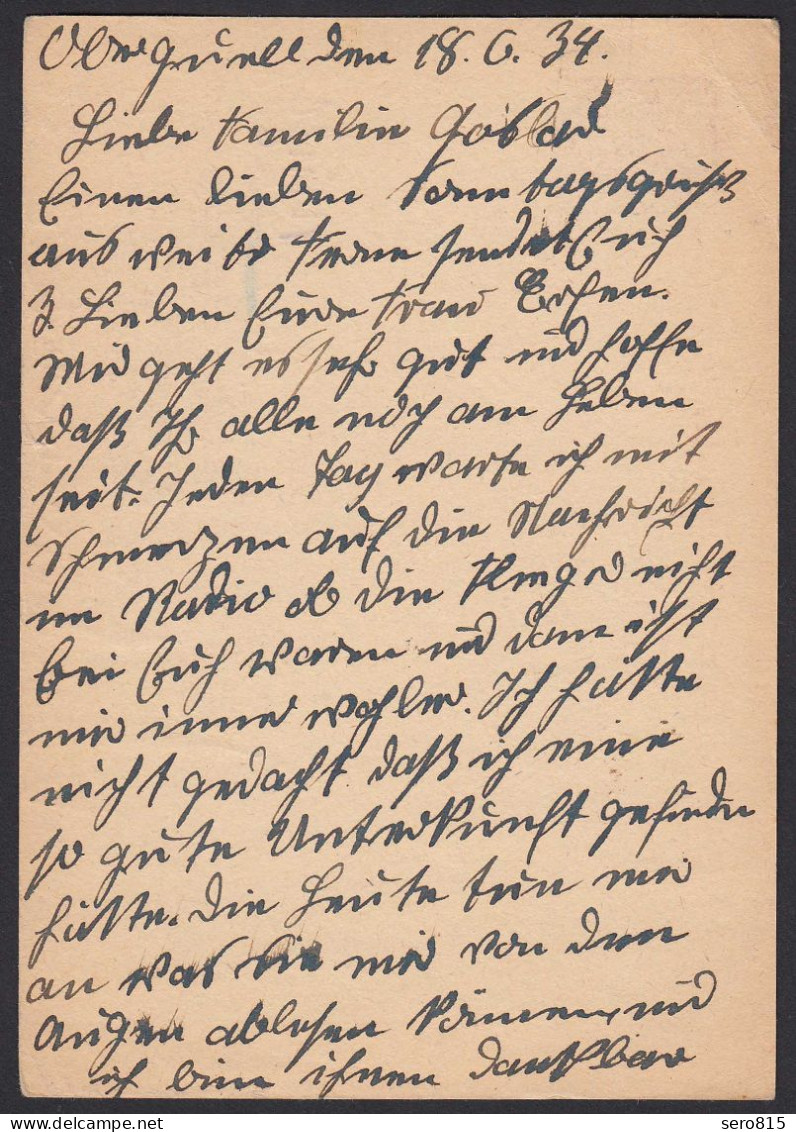 Oberquell den 18. 6. 34.
Liebe Familie Goslar
Einen lieben Sonntagsgruß
aus weiter Ferne sendet Euch
3. Lieben Eure Frau
Mir geht es sehr gut und hoffe
daß Ihr alle noch am Leben
seit. Jeden Tag warte ich mit
Schmerzen auf die Nachricht
im Radio ob die Flieger nicht
bei Euch waren und dann ist
mir immer wohler. Ich hätte
nicht gedacht daß ich eine
so gute Unterkunft gefunden
hätte. die Leute tun mir
an was sie mir von den
Augen ablesen können und
ich bin ihnen dankbar
sero815